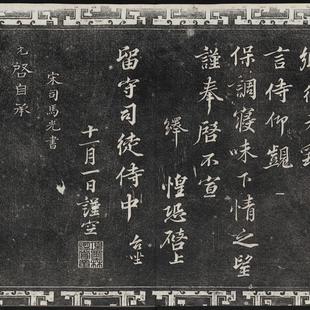 言侍仰觀
保調寢味下情之望
謹奉啓不宣
絳 惶恐啓上
留守司徒侍中 台坐
十一月一日謹空
宋司馬光書
光啓自承